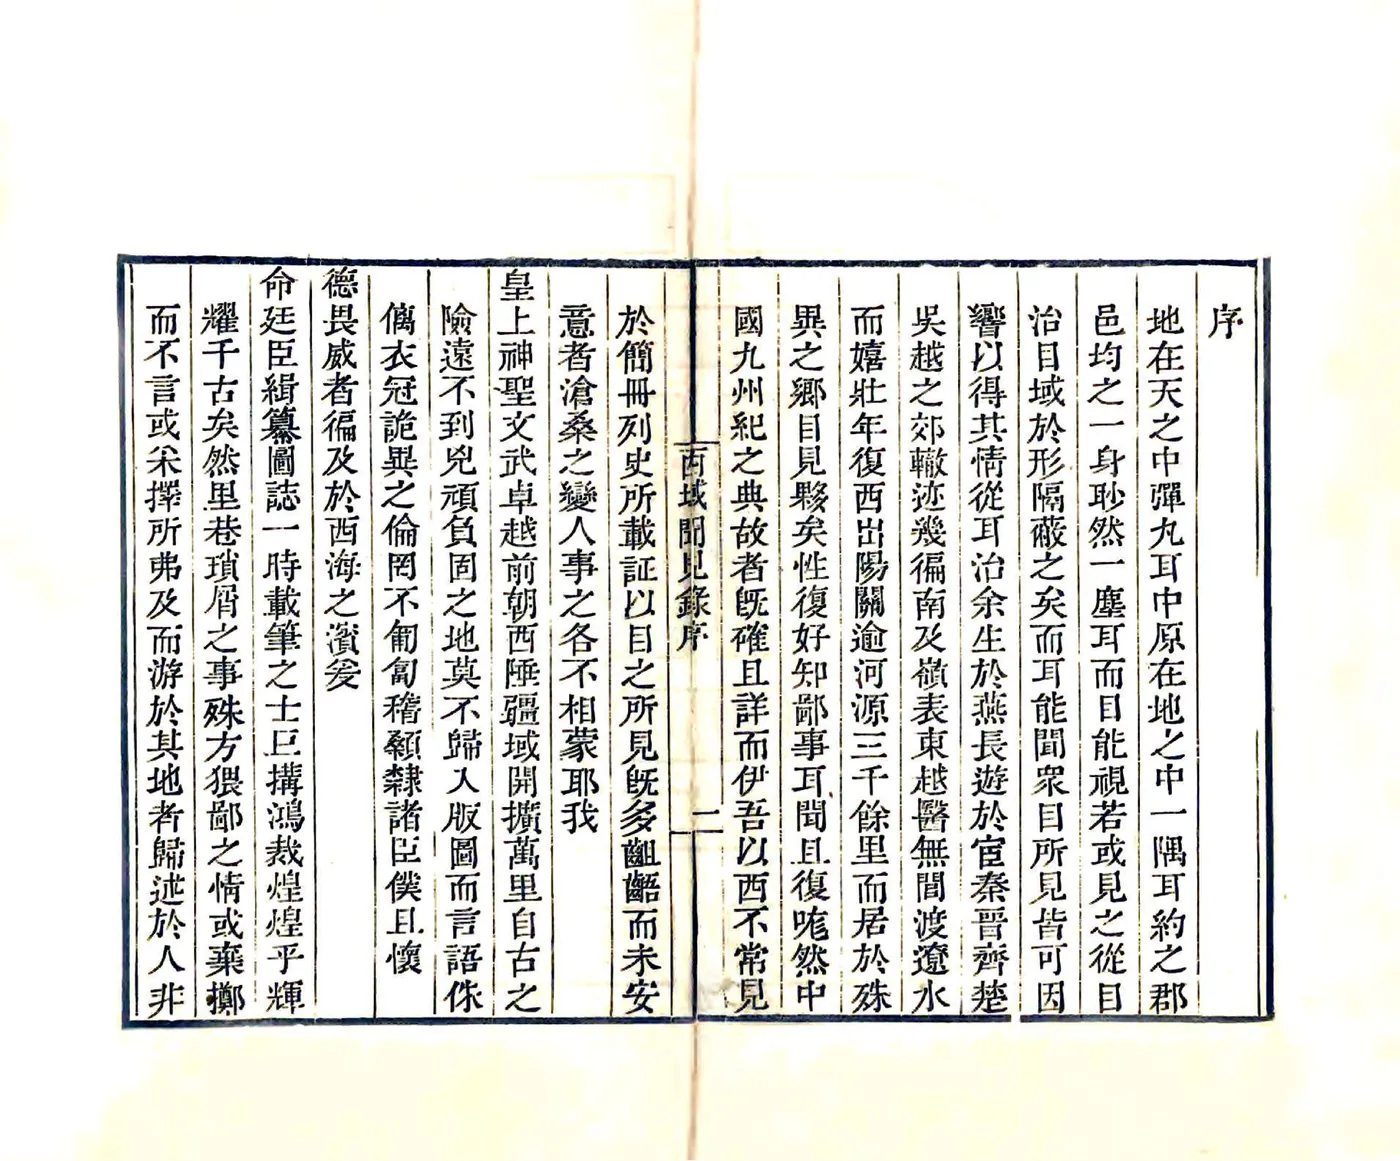 序
地在天之中彈丸耳中原在地之中一隅耳約之郡
邑均之一身眇然一塵耳而目能視若或見之從目
治目域於形隔蔽之矣而耳能聞衆目所見皆可因
響以得其情從耳治余生於燕長遊於宦秦晉齊楚
吳越之郊轍迹幾徧南及嶺表東越醫無閭渡遼水
而嬉壯年復西出陽關逾河源三千餘里而居於殊
異之鄉目見夥矣性復好知鄙事耳聞且復咙然中
國九州紀之典故者旣確且詳而伊吾以西不常見
西域聞見錄序
二
於簡冊列史所載証以目之所見旣多齟齬而未安
意者滄桑之變人事之各不相蒙耶我
皇上神聖文武卓越前朝西陲疆域開擴萬里自古之
險遠不到兇頑負固之地莫不歸入版圖而言語侏
儷衣冠詭異之倫罔不匍匐稽顙隸諸臣僕且懷
德畏威者徧及於西海之濱爰
命廷臣緝纂圖誌一時載筆之士巨搆鴻裁煌煌乎輝
耀千古矣然里巷瑣屑之事殊方猥鄙之情或棄擲
而不言或采擇所弗及而游於其地者歸述於人非